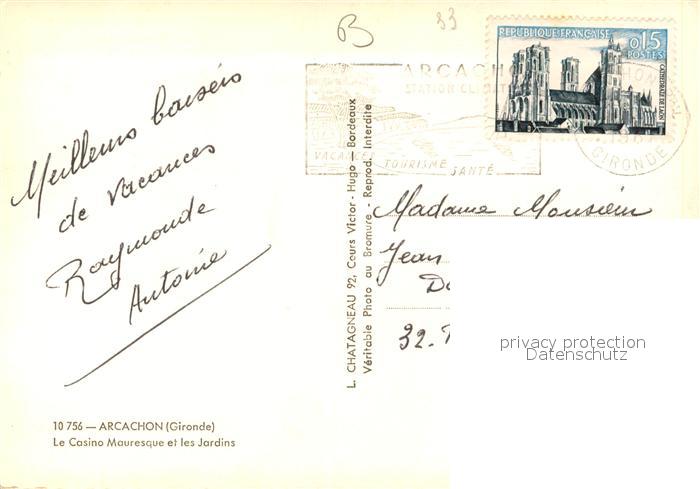 B
33
RÉPUBLIQUE FRANÇAISE
0,15
POSTES
CATHÉDRALE DE LAON
ARCACHON
STATION CLIMAT
VACANCES TOURISME SANTÉ
GIRONDE
Meilleurs baisers
de vacances
Raymonde
Antoine
L. CHATAGNEAU 92, Cours Victor - Hugo - Bordeaux
Véritable Photo au Bromure - Reprod. Interdite
Madame Monsieur
Jean
32.
privacy protection
Datenschutz
10 756 — ARCACHON (Gironde)
Le Casino Mauresque et les Jardins